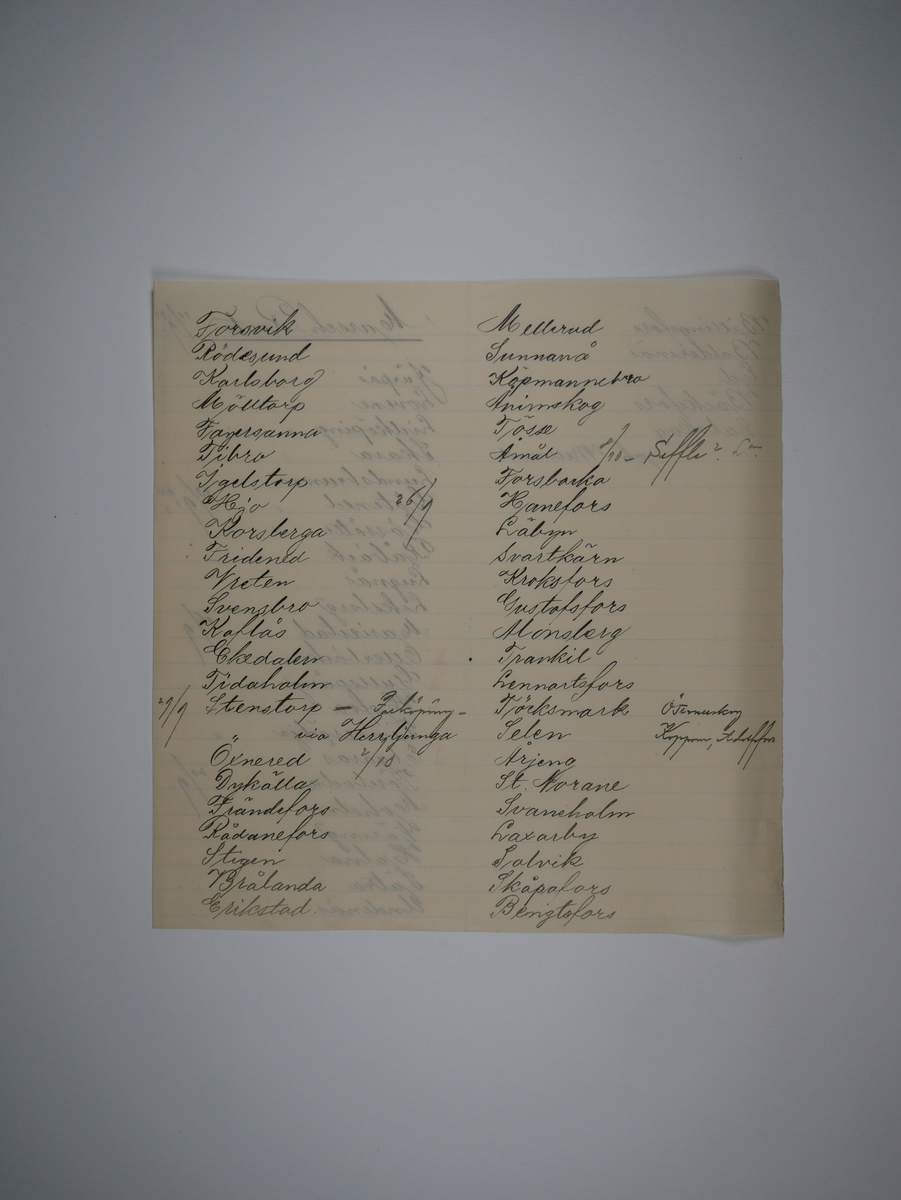 Forsvik
Rödesund
Karlsborg
Mölltorp
Fagersanna
Tibro
Igelstorp
Hjo 26/9
Korsberga
Fridened
Vreten
Svensbro
Kaflås
Ekedalen
Tidaholm
29/9 Stenstorp —
via Herrljunga
Öxnered 2/10
Dykälla
Frändefors
Rådanefors
Stigen
Brålanda
Erikstad
Mellerud
Sunnanå
Köpmannebro
Änimskog
Tösse
Åmål /10 – Seffle?
Forsbacka
Hanefors
Låbyn
Svartkärn
Kroksfors
Gustafsfors
Monsberg
Trankil
Lennartsfors
Töcksmark Östmarkskog
Selen Koppom,
Årjeng
St. Norane
Svaneholm
Laxarby
Solvik
Skåpafors
Bengtsfors